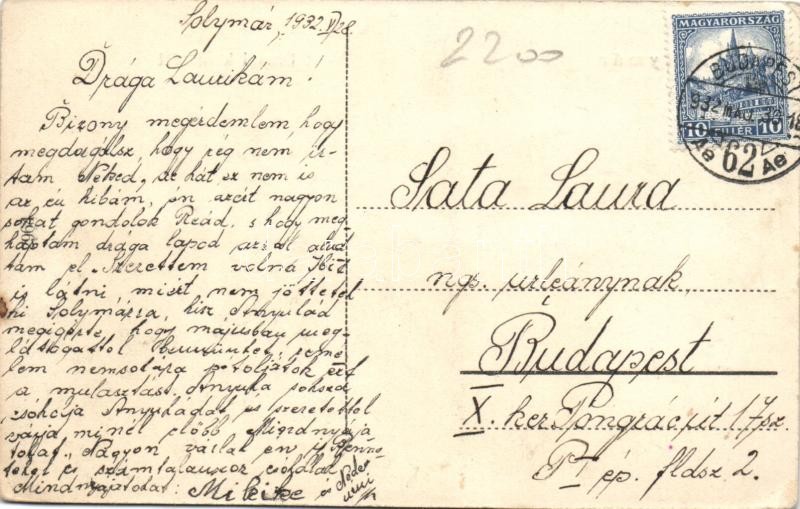 Solymár, 1932. V/28.
2200
Drága Laurikám!
Bizony megérdemlem, hogy
megdorgálsz, hogy rég nem ír-
tam Neked, de hát ez nem is
az én hibám, én azért nagyon
sokat gondolok Reád, s hogy meg-
kaptam drága lapod azzal alud-
tam el. Szerettem volna
is látni miért nem jöttetek
ki Solymárra, hisz Anyukád
megigérte, hogy májusban meg-
látogattok bennünket, reme-
lem nemsokára pótoljátok ezt
a mulasztást. Anyuka sokszor
csókolja Anyukádat és szeretettel
várja minél előbb
Nagyon várlak én is
és számtalanszor csókollak
Mindnyájatokat: Mikike és
MAGYARORSZÁG
10 FILLÉR 10
BUDAPEST
932 MÁJ. 30
62
Ae Ae
Sata Laura
ngs. urleánynak
Budapest
X. ker Pongrác út 17 sz.
ép. fldsz 2.